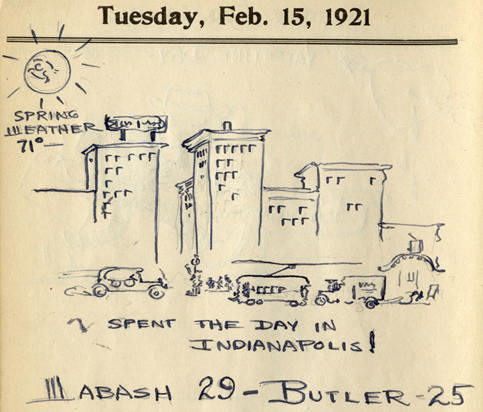 Tuesday, Feb. 15, 1921
SPRING
WEATHER
71°—
SPENT THE DAY IN
INDIANAPOLIS!
WABASH 29 - BUTLER - 25